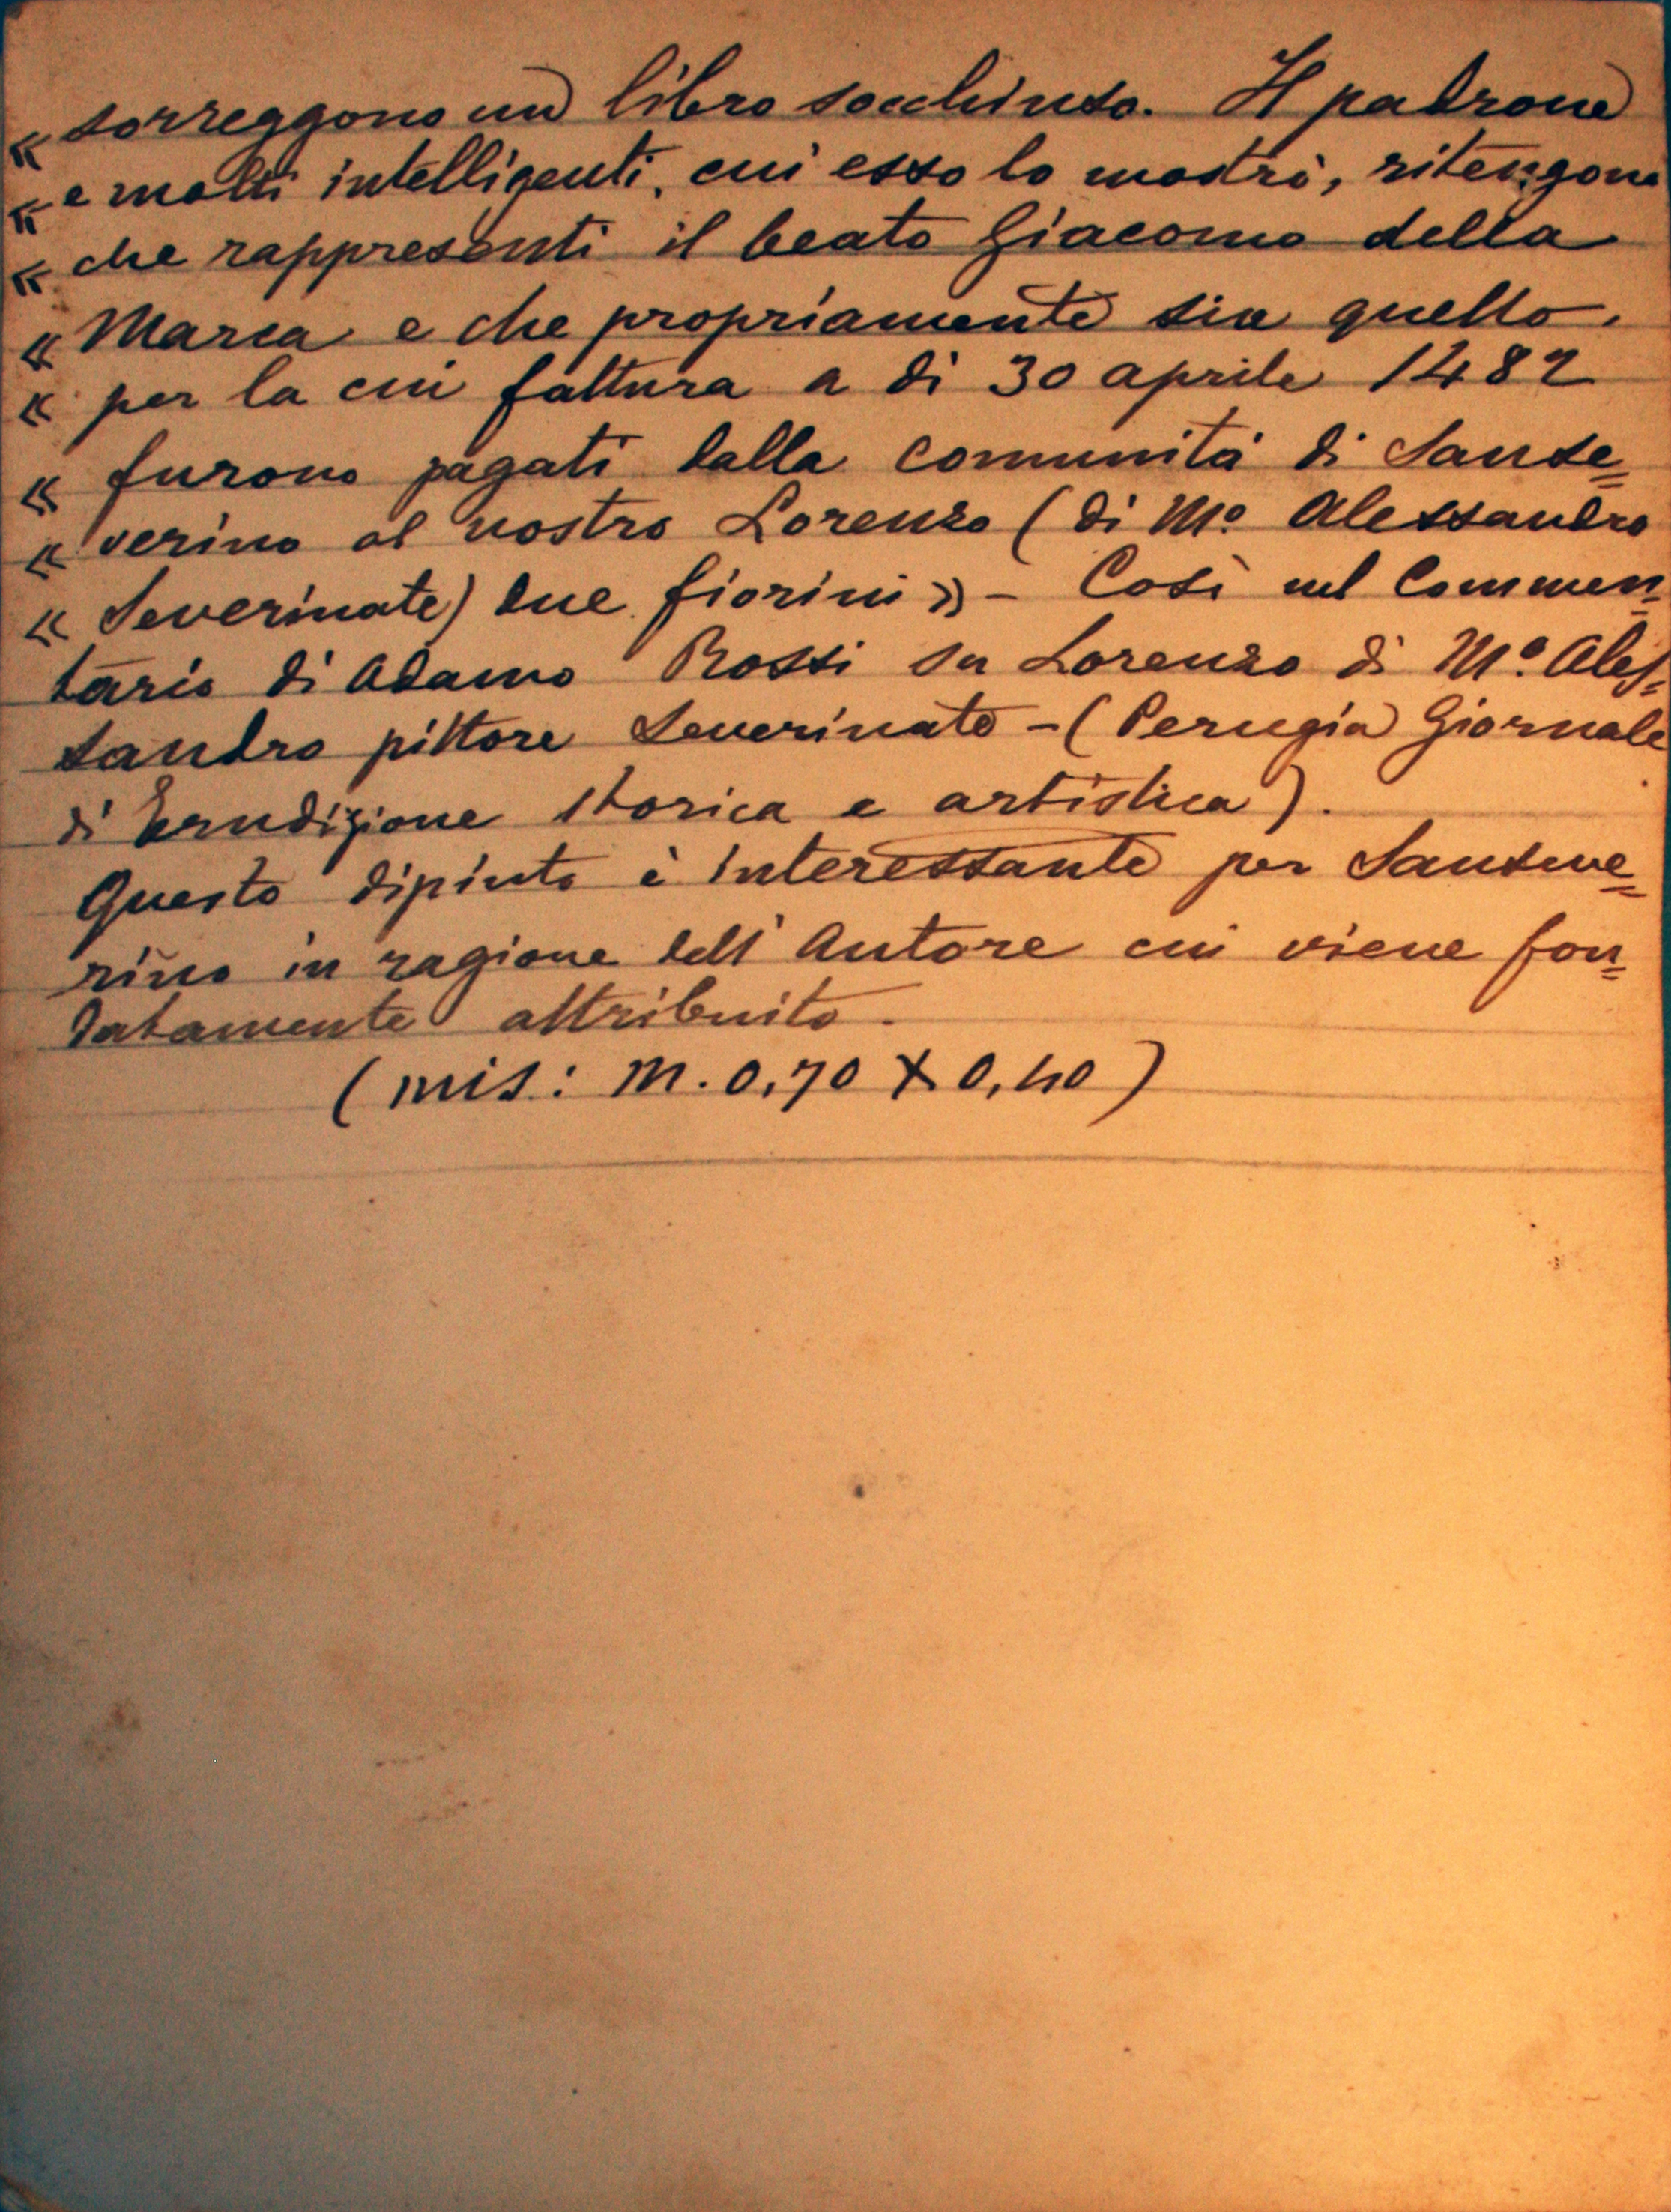 « sorreggono un libro socchiuso. Il padrone
« e molti intelligenti, cui esso lo mostrò, ritengono
« che rappresenti il beato Giacomo della
« Marca e che propriamente sia quello.
« per la cui fattura a dì 30 aprile 1482
« furono pagati dalla comunità di Sanse=
« verino al nostro Lorenzo (di Mº. Alessandro
« Severinate) due fiorini » - Così nel Commen=
tario di Adamo Rossi su Lorenzo di Mº. Ales=
sandro pittore Severinate - (Perugia Giornale
di Erudizione storica e artistica).
Questo dipinto è interessante per Sanseve=
rino in ragione dell'Autore cui viene fon=
datamente attribuito.
(mis: m. 0,70 X 0,40)